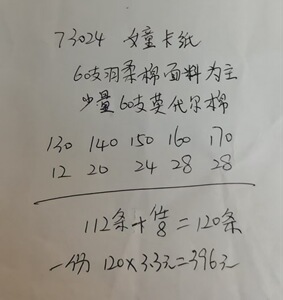 73024 女童卡纸
60支羽柔棉面料为主
少量60支莫代尔棉
130 140 150 160 170
12 20 24 28 28
112条+备8=120条
一份 120×3.3元=396元